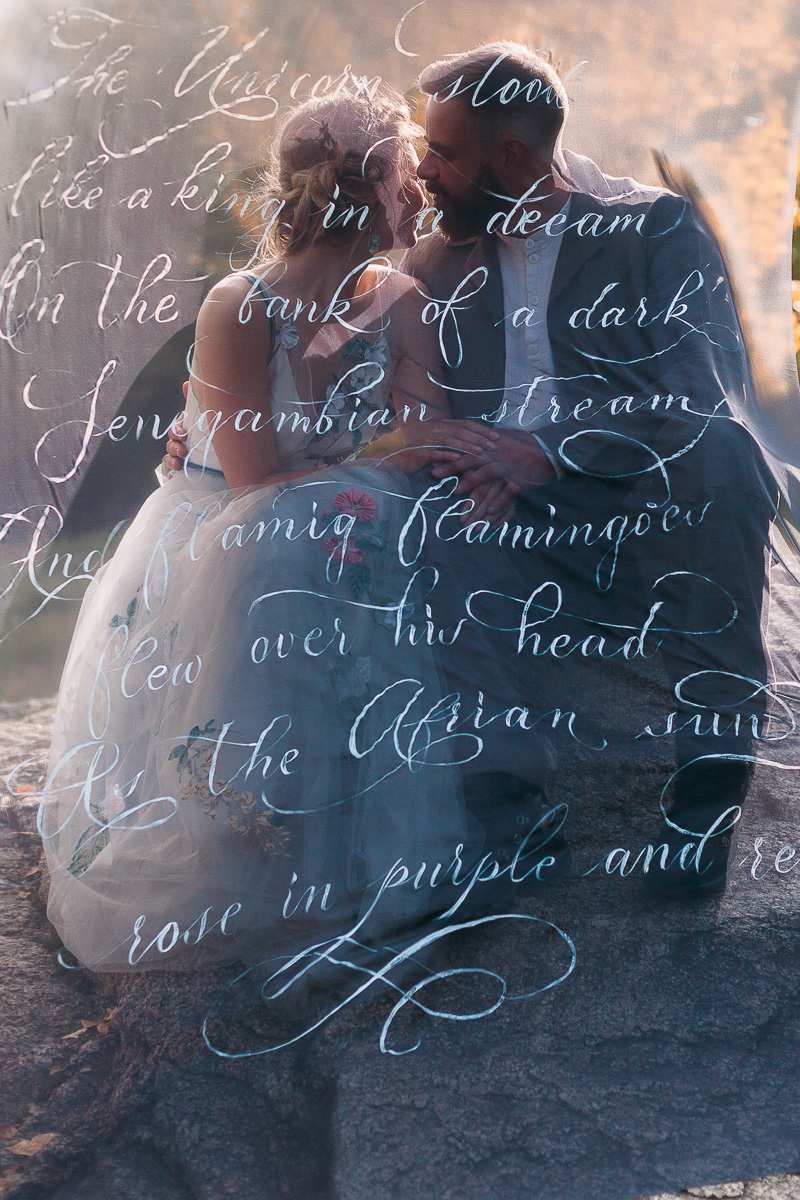 The Unicorn stood
like a king in a dream
On the bank of a dark
Senegambian stream
And flamig flamingoes
flew over his head
As the Afrian sun
rose in purple and re